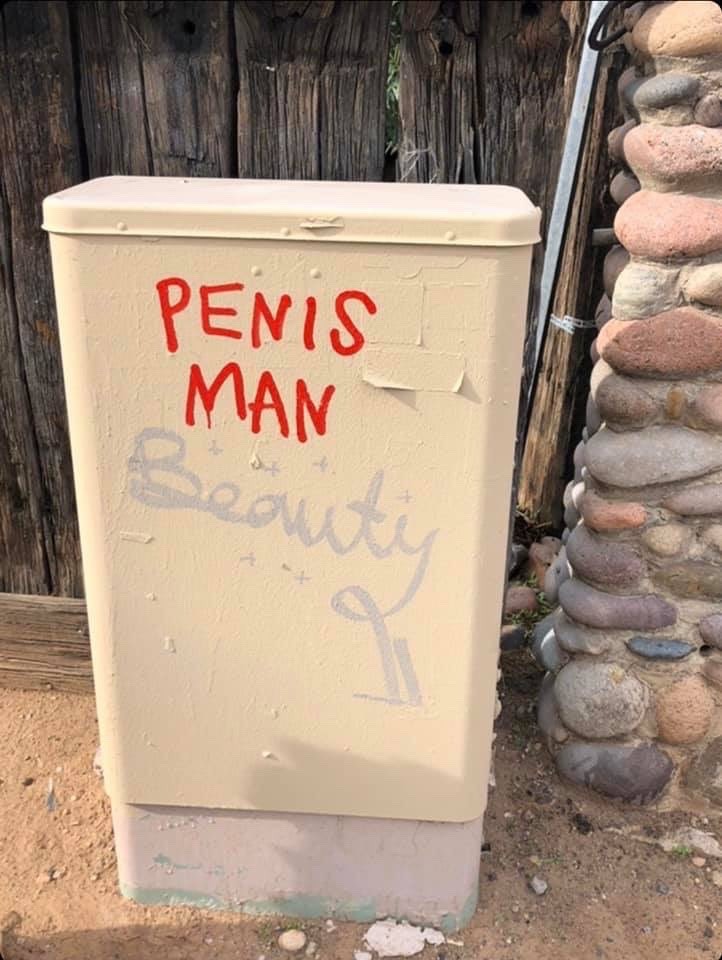 PENIS
MAN
Beauty